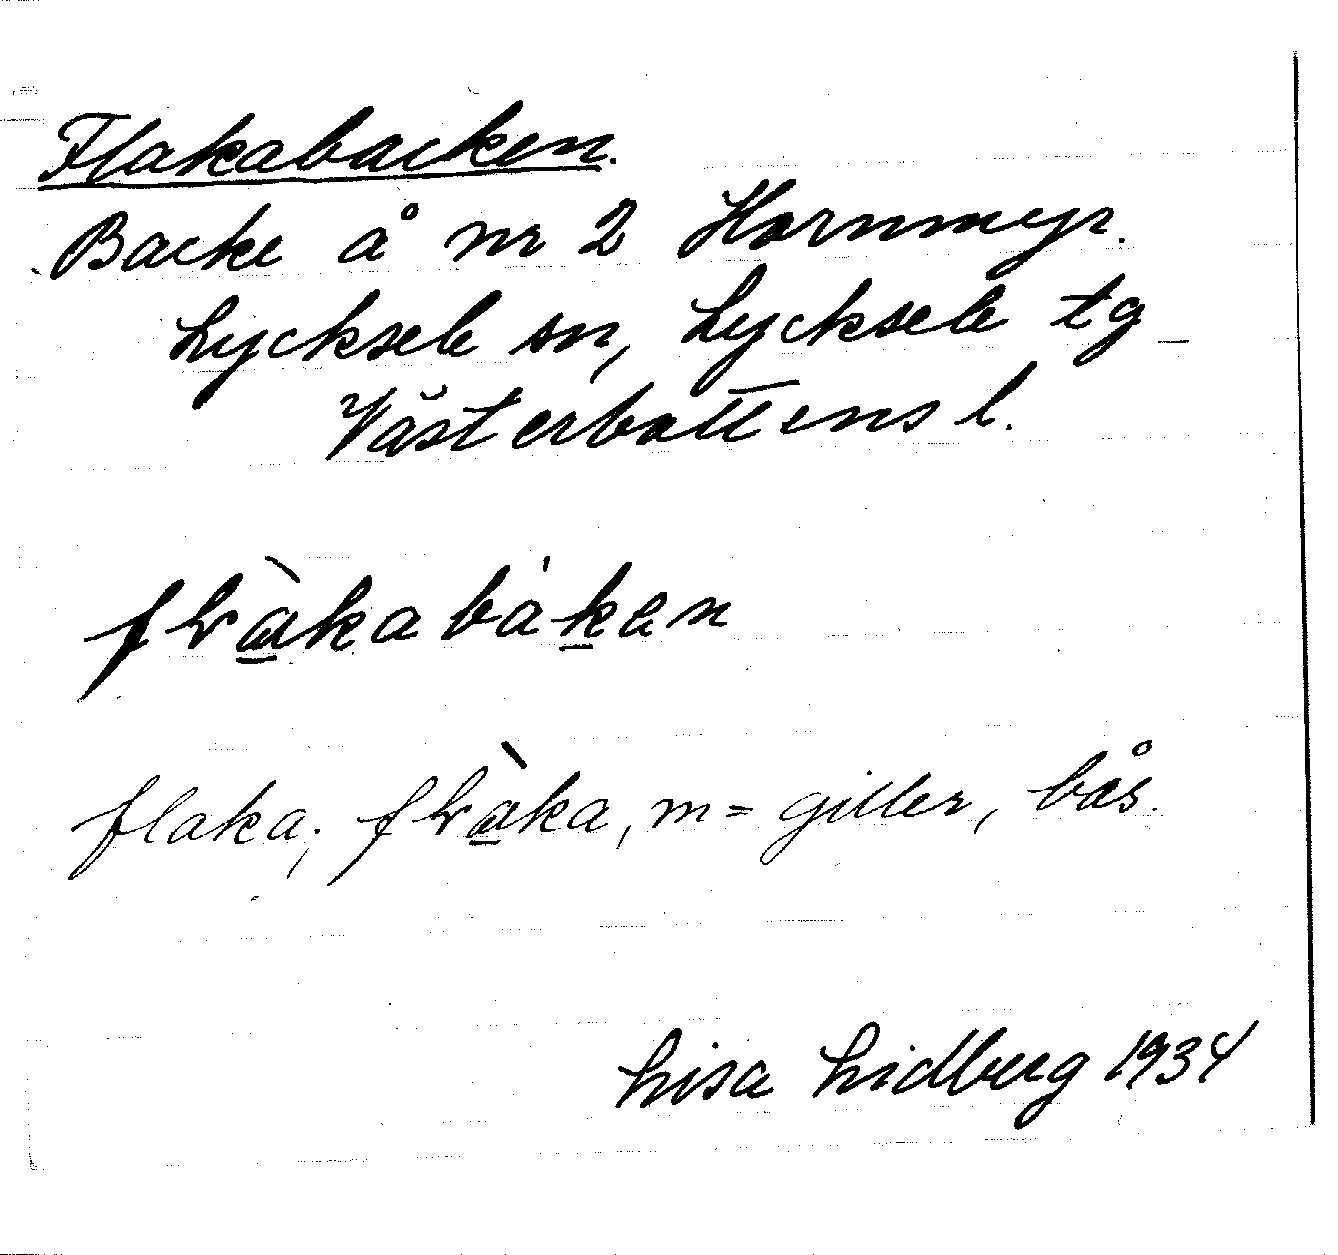 Flakabacken.
Backe å nr 2 Hornmyr.
Lycksele sn, Lycksele tg
Västerbottens l.
flàkabàken
flaka; flàka, m = giller, bås.
Lisa Lidberg 1934